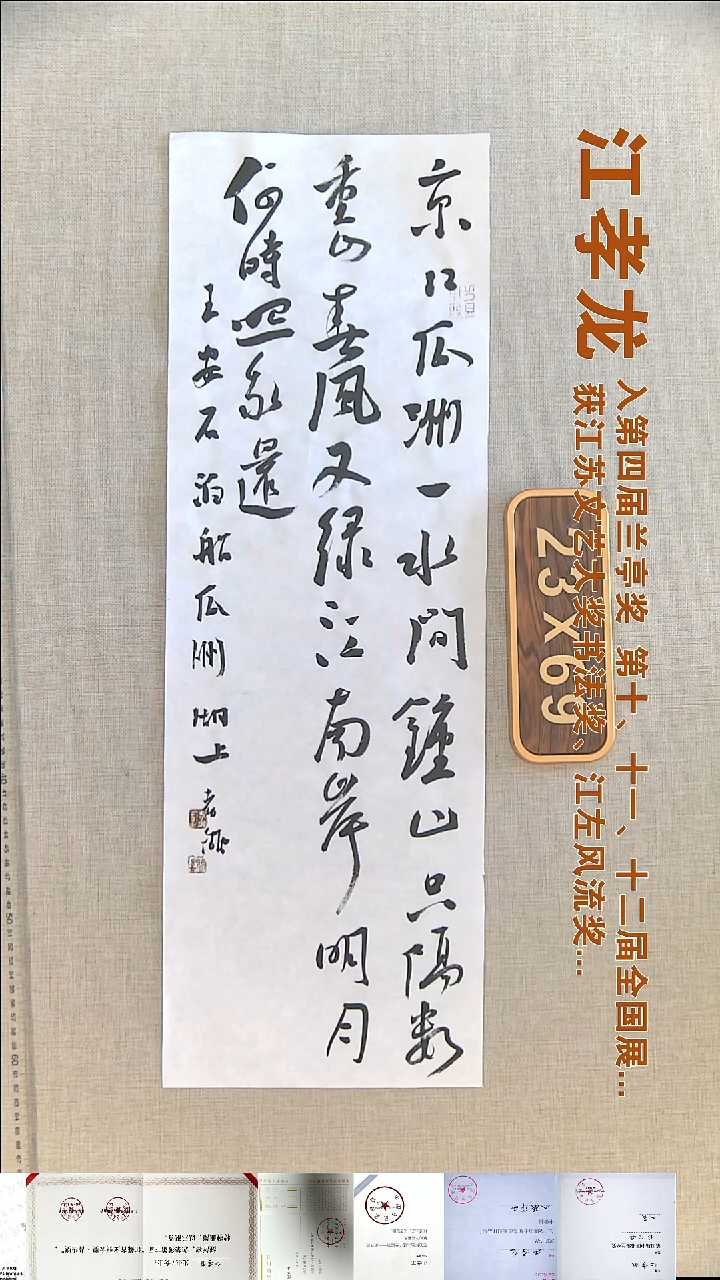 京口瓜洲一水間鍾山只隔数
重山春風又绿江南岸明月
何時照我還
王安石泊船瓜洲 湖上孝龍
江孝龙
入第四届兰亭奖 第十、十一、十二届全国展...
获江苏文艺大奖书法奖、江左风流奖...
23x69